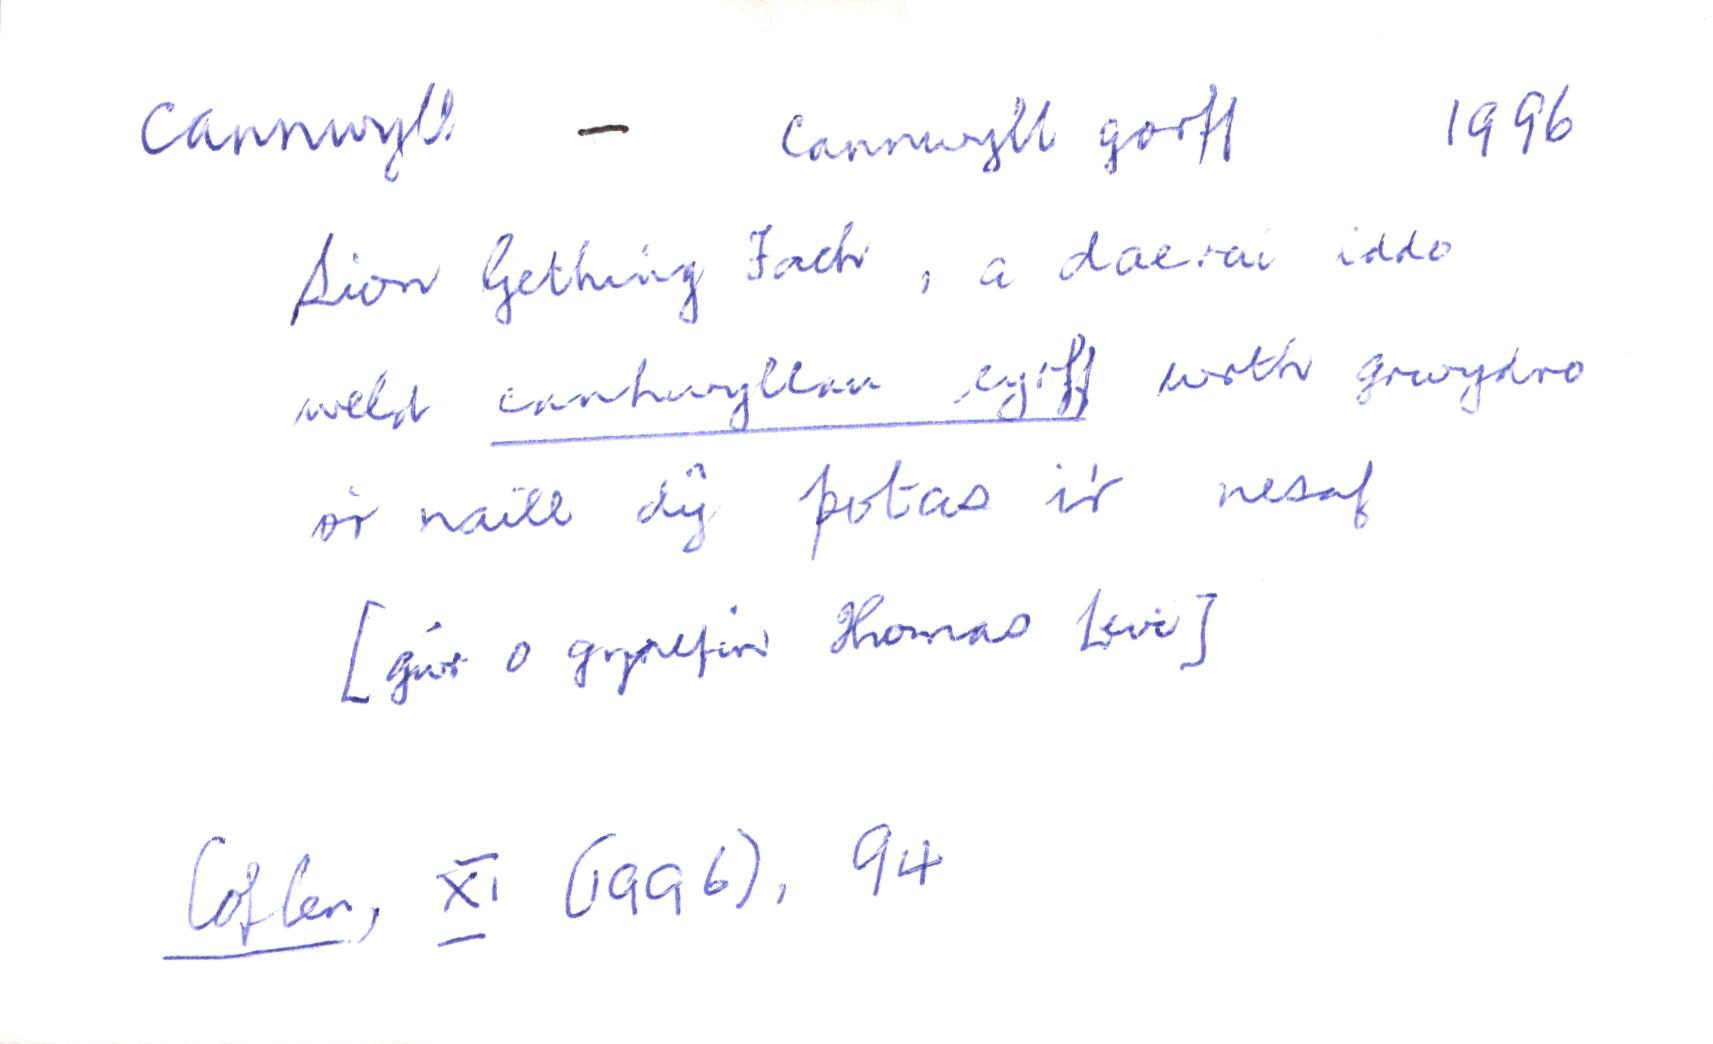 Cannwyll — Cannwyll gorff 1996
Sion Gething Fach, a daerai iddo
weld canhwyllau cyrff wrth grwydro
o'r naill dŷ potas i'r nesaf
[gŵr o gynefin Thomas Levi]
Cof Cen, XI (1996), 94